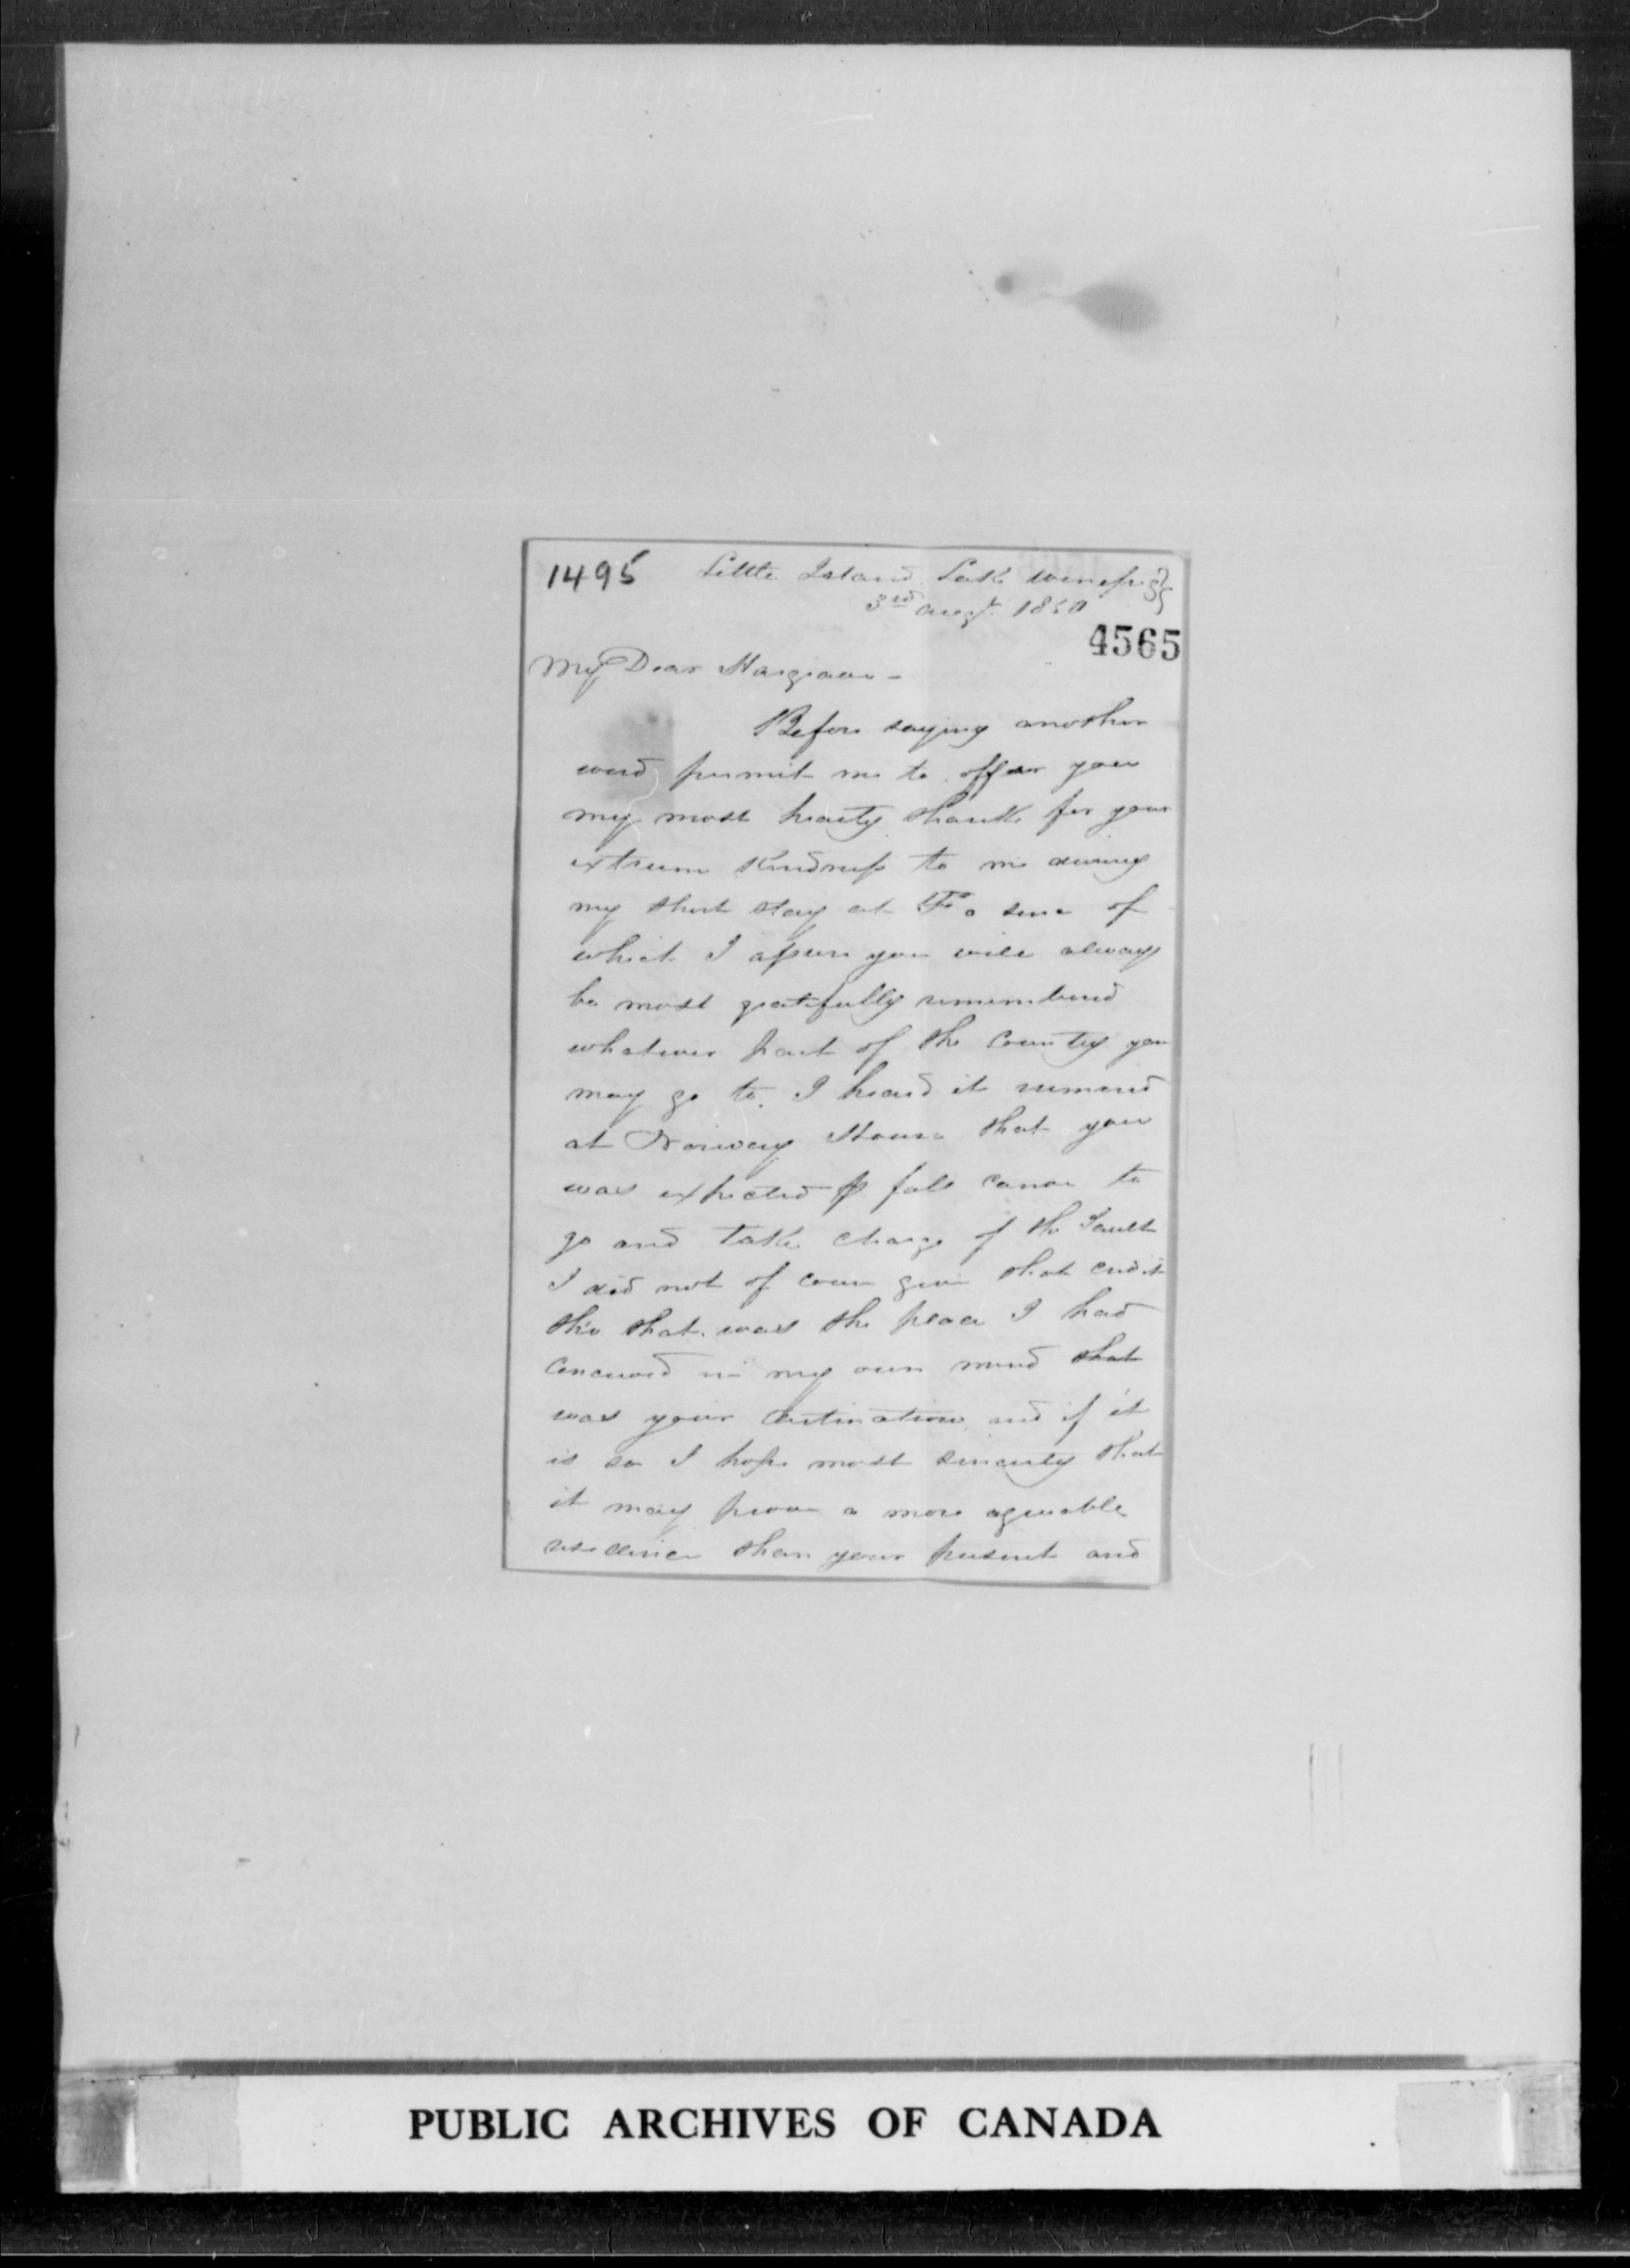 1495 Little Island Lake Winipeg
3rd Augt. 1850
4565
My Dear Hargrave -
Before saying another
word permit me to offer you
my most hearty thanks for your
extreme kindness to me during
my short stay at YF a sense of
which I assure you will always
be most gratefully remembered
whatever part of the Country you
may go to. I heard it rumored
at Norway House that you
was expected p fall canoe to
go and take charge of the Sault
I did not of course give that credit
tho that was the place I had
conceived in my own mind that
was your destination and if it
is so I hope most sincerely that
it may prove a more agreeable
residence than your present and
PUBLIC ARCHIVES OF CANADA